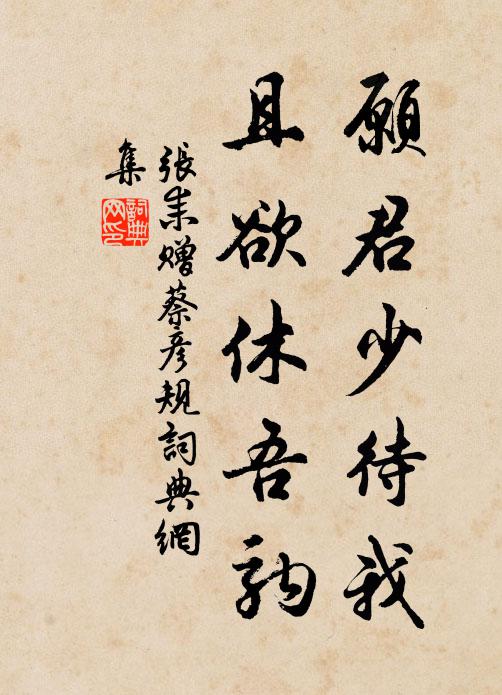 願君少待我
且欲休吾靷
張耒贈蔡彦規詞典網
集
詞典
网印